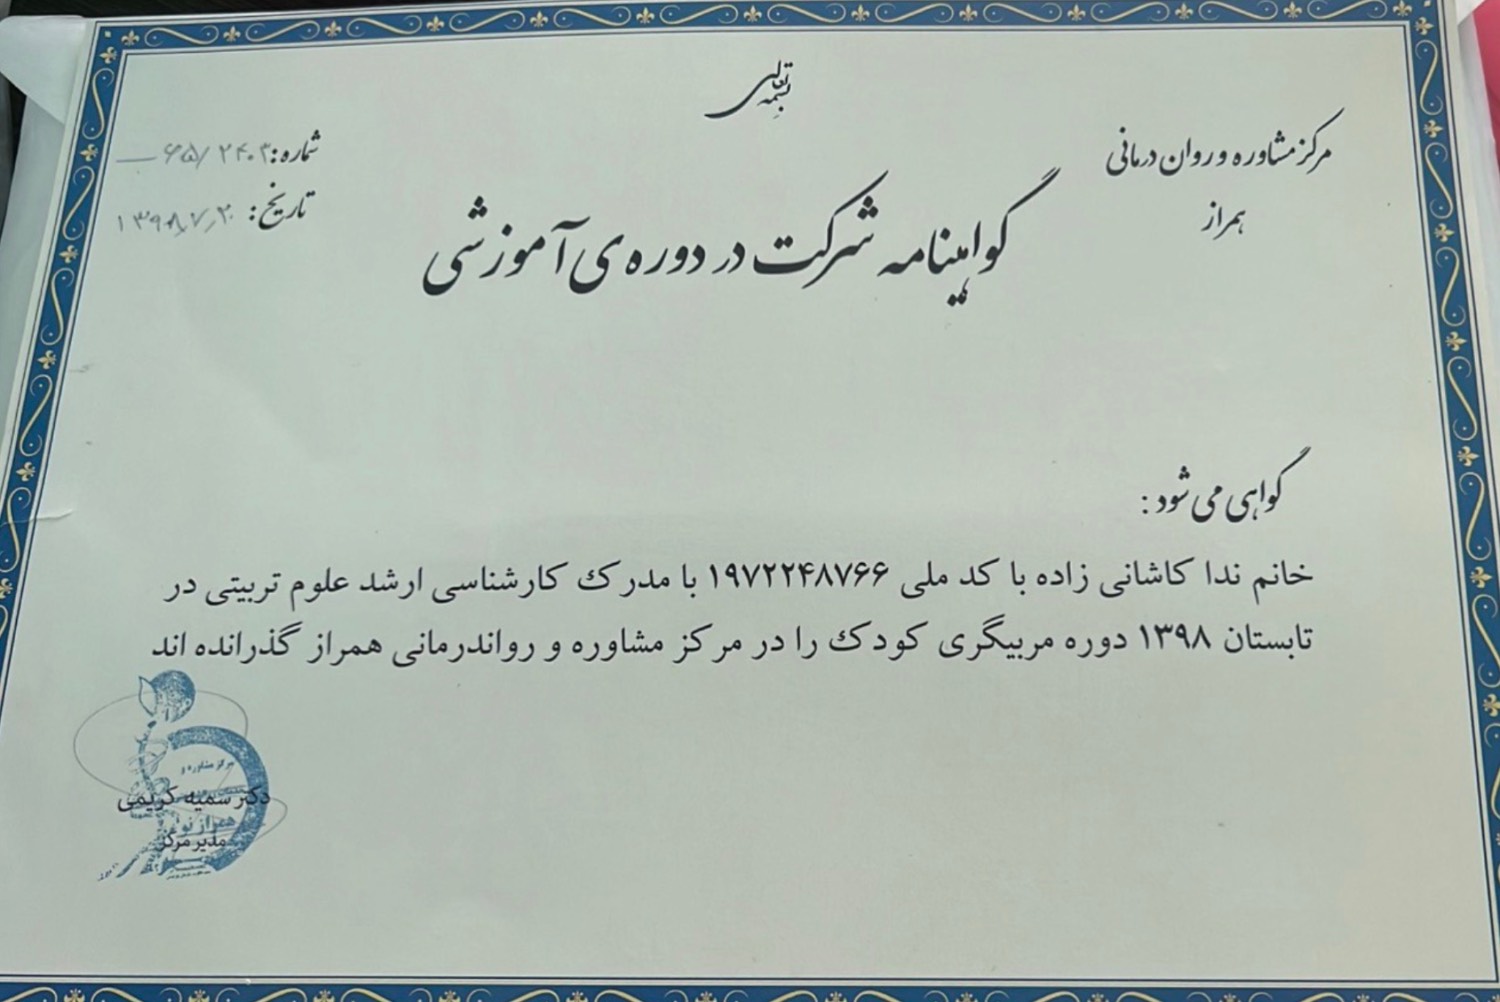 بسمه تعالی
مرکز مشاوره و روان درمانی
همراز
شماره: ۶۵/۲۴۰۲
تاریخ: ۱۳۹۸/۷/۲۰
گواهینامه شرکت در دوره ی آموزشی
گواهی می شود :
خانم ندا کاشانی زاده با کد ملی ۱۹۷۲۲۴۸۷۶۶ با مدرک کارشناسی ارشد علوم تربیتی در
تابستان ۱۳۹۸ دوره مربیگری کودک را در مرکز مشاوره و رواندرمانی همراز گذرانده اند
مرکز مشاوره و
دکتر سمیه کریمی
همراز نو
مدیر مرکز